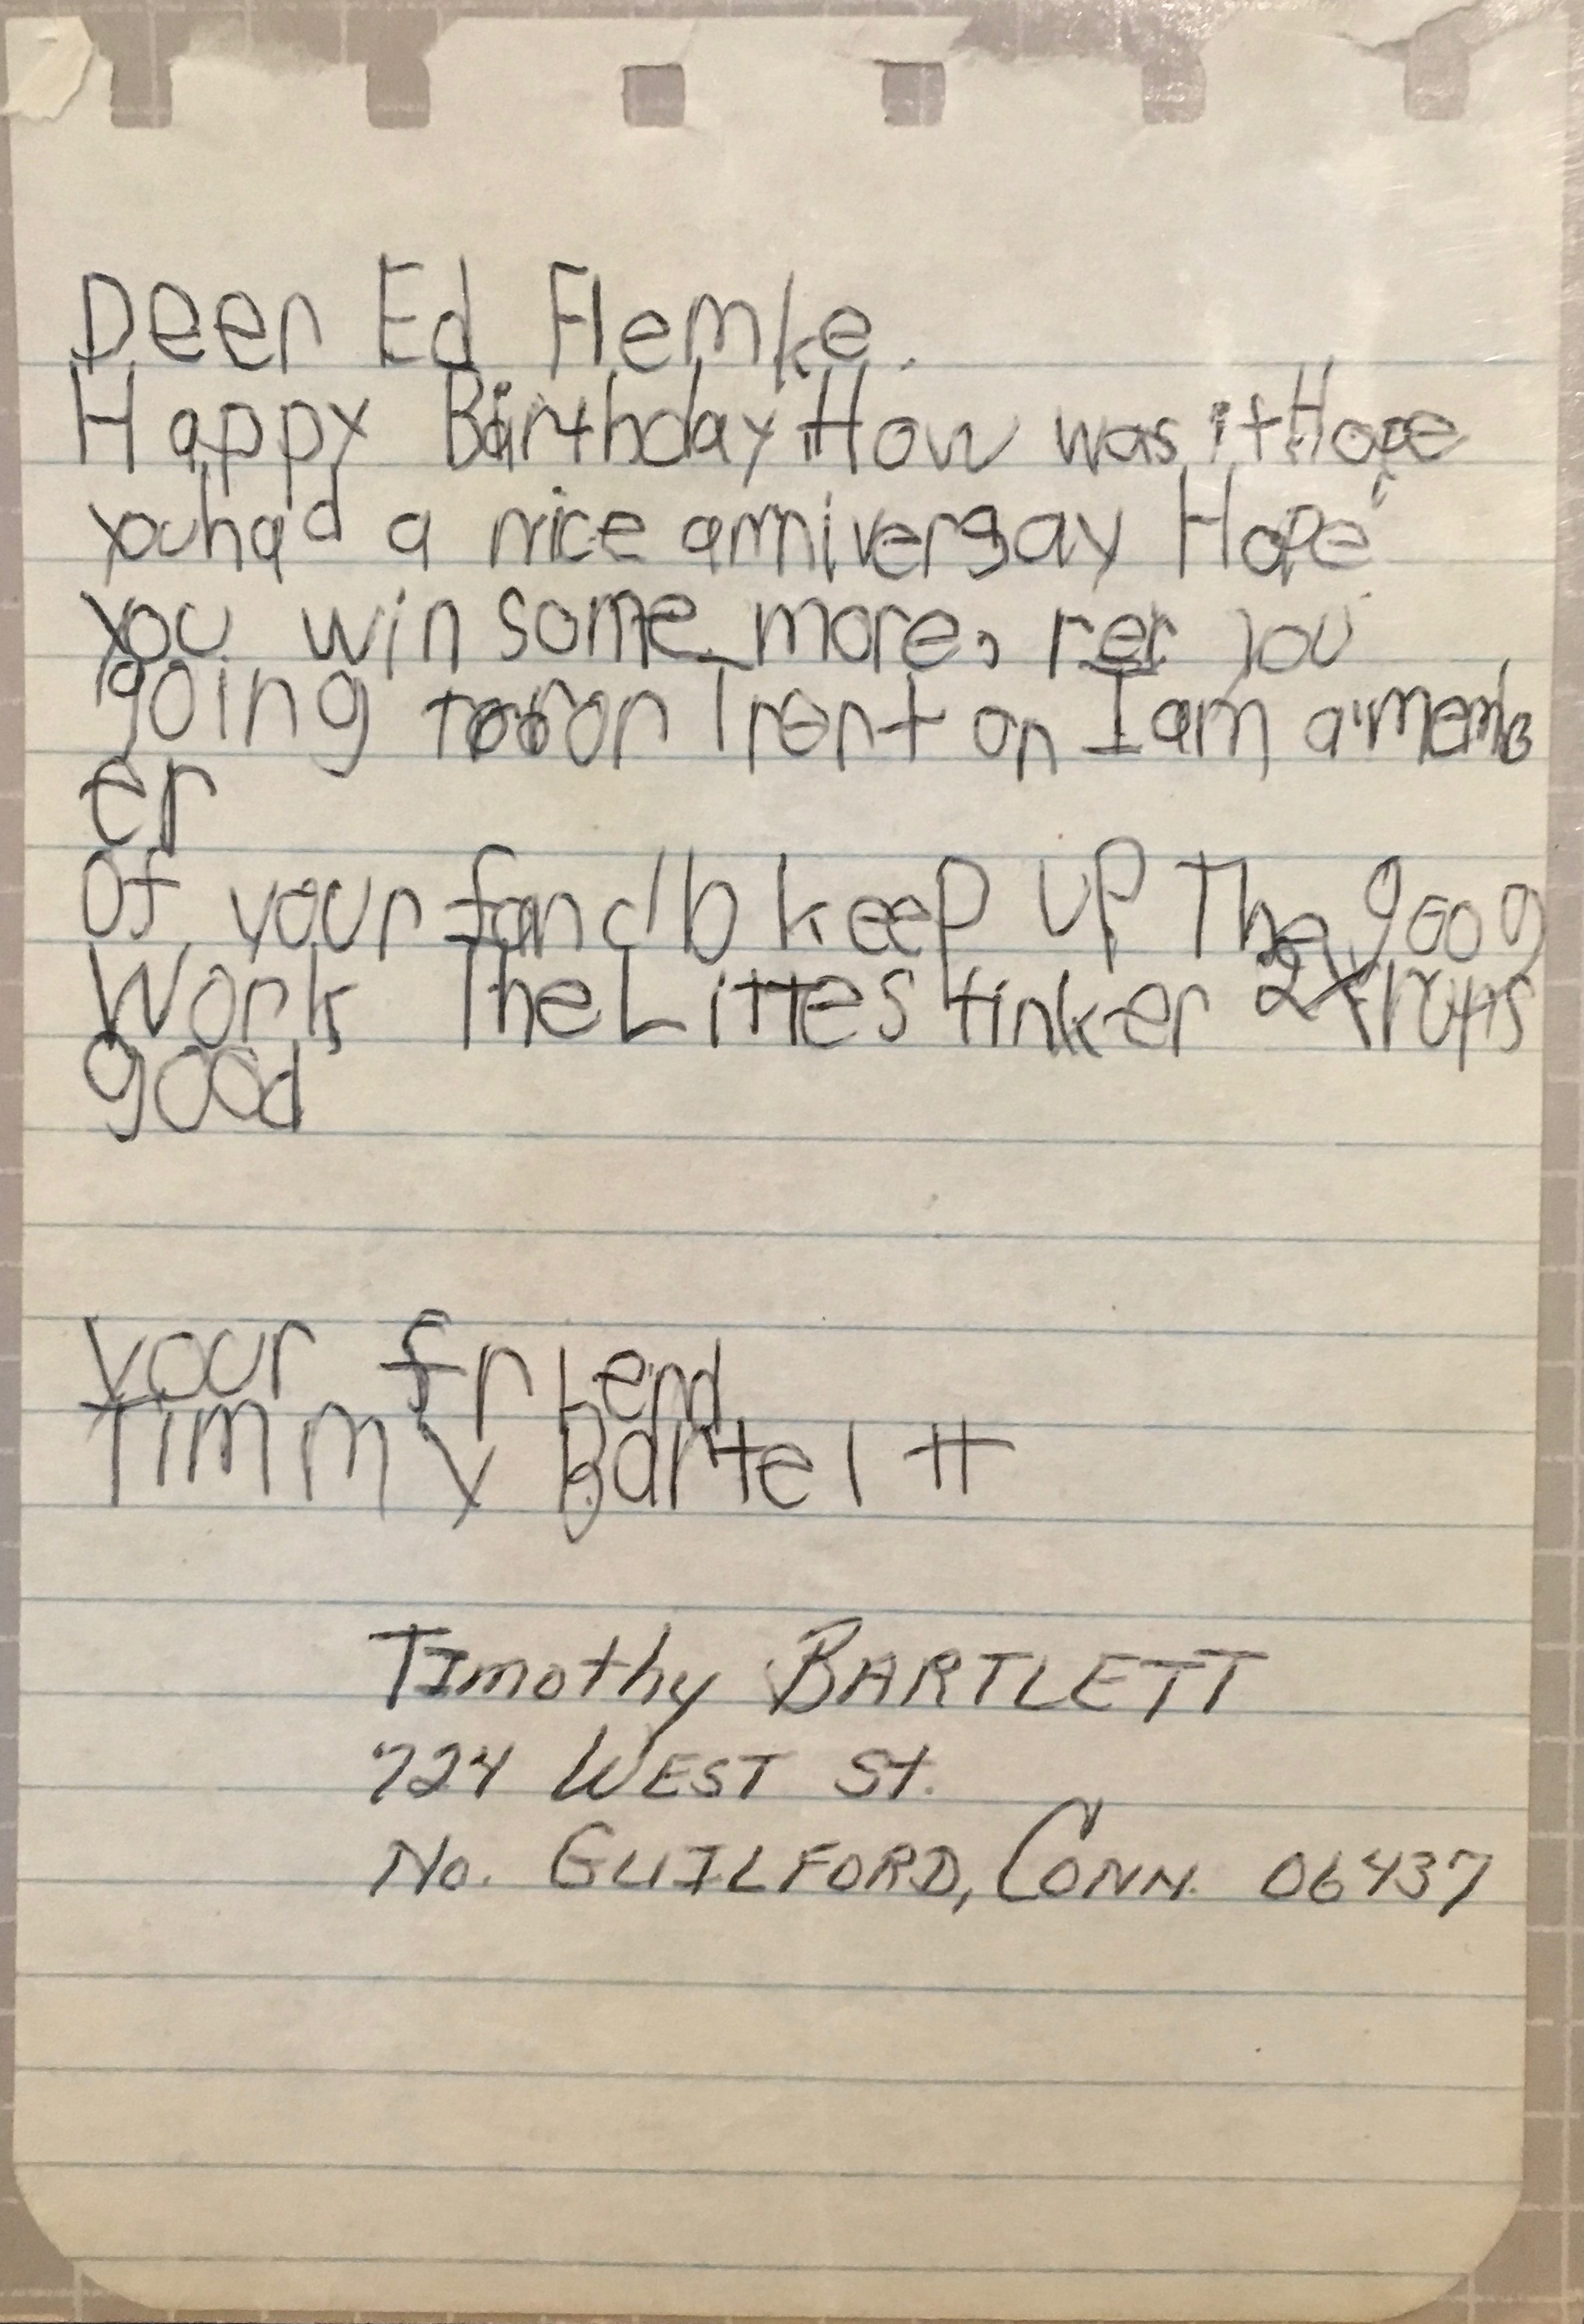 Deer Ed Flemke.
Happy Birthday How was it Hope
you had a nice anniversay Hope
you win some more, rer you
going to Trent on I am a memb
er
of your fanclb keep up The goog
Work The Littestinker runs
good
your friend
Timmy Barteltt
Timothy BARTLETT
724 WEST St.
No. GUILFORD, CONN. 06437